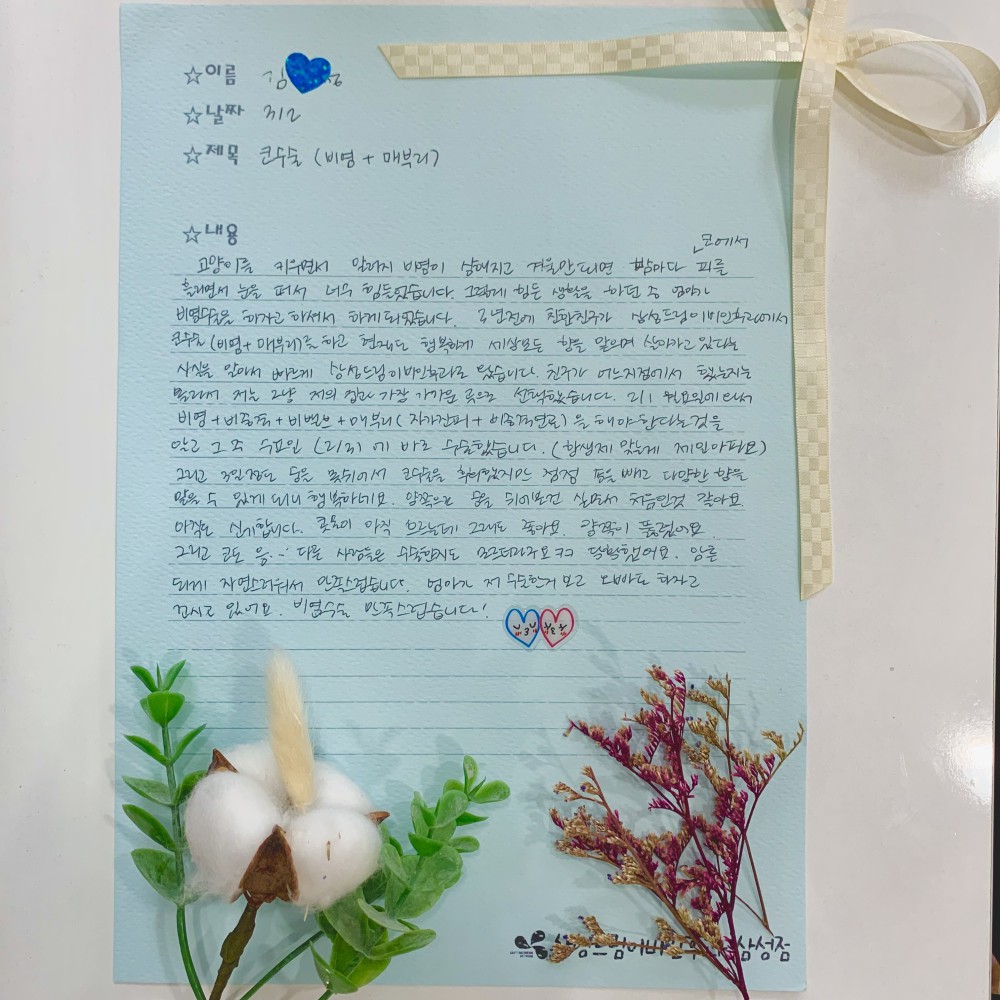 ☆이름 김
☆날짜 3/2
☆제목 코수술 (비염 + 매부리)
☆내용
코에서
고양이를 키우면서 알러지 비염이 심해지고 겨울만되면 밤마다 피를
흘리면서 눈을 떠서 너무 힘들었습니다. 그렇게 힘든 생활을 하던 중 엄마가
비염수술을 하자고 하셔서 하게 되었습니다. 2년전에 친한친구가 삼성드림이비인후과에서
코수술 (비염+매부리)를 하고 현재도 행복하게 세상모든 향을 맡으며 살아가고 있다는
사실을 알아서 빠르게 삼성드림이비인후과로 왔습니다. 친구가 어느지점에서 했는지는
몰라서 저는 그냥 저의 집과 가장 가까운 곳으로 선택했습니다. 2/1 월요일에 와서
비염+비중격+비밸브+매부리(자가진피+비중격연골)을 해야한다는것을
알고 그 주 수요일 (2/3)에 바로 수술했습니다. (항생제 맞는게 제일아파요)
그리고 3일정도 숨을 못쉬어서 코수술을 후회했지만 점점 솜을 빼고 다양한 향을
맡을 수 있게 되니 행복하네요. 양쪽으로 숨을 쉬어본건 살면서 처음인것 같아요.
아직도 신기합니다. 콧물이 아직 흐르는데 그래도 좋아요. 양쪽이 뚫렸어요.
그리고 코도 음.. 다른 사람들은 수술한지도 모르더라구요ㅋㅋ 당황했어요. 암튼
되게 자연스러워서 만족스럽습니다. 엄마가 저 수술한거 보고 오빠도 하자고
꼬시고 있어요. 비염수술 만족스럽습니다!
삼성점